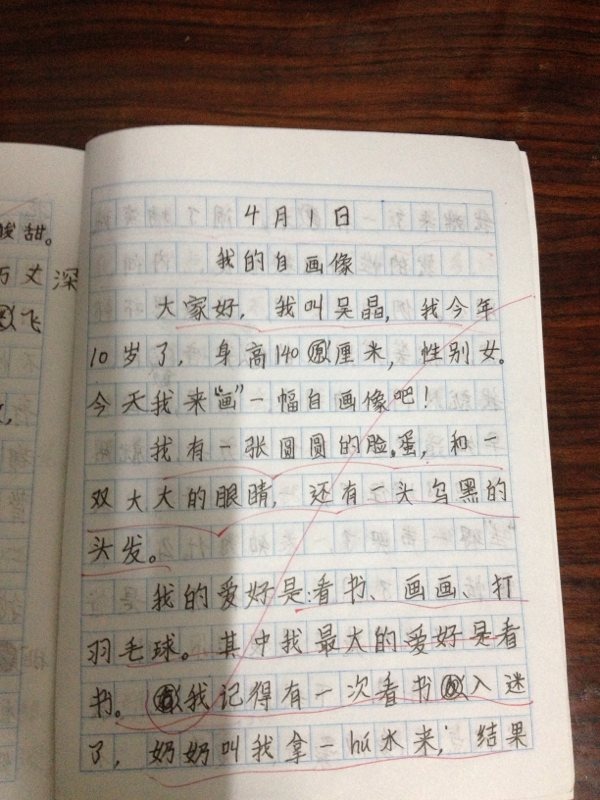 酸甜。
万丈深
飞
4月1日
我的自画像
大家好，我叫吴晶，我今年
10岁了，身高140厘米，性别女。
今天我来"画"一幅自画像吧！
我有一张圆圆的脸蛋，和一
双大大的眼睛，还有一头乌黑的
头发。
我的爱好是：看书、画画、打
羽毛球。其中我最大的爱好是看
书。我记得有一次看书入迷
了，奶奶叫我拿一hú水来，结果